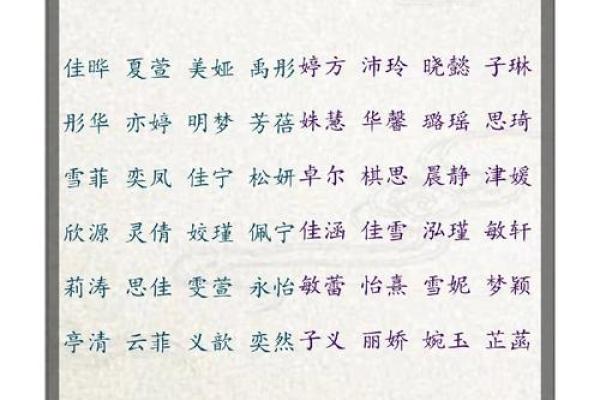 佳晔 夏萱 美娅 禹彤婷方 沛玲 晓懿 子琳
彤华 亦婷 明梦 芳蓓姝慧 华馨 璐瑶 思琦
雪菲 奕凤 佳宁 松妍卓尔 棋思 晨静 津媛
欣源 灵倩 姣瑾 佩宁佳涵 佳雪 泓瑾 敏轩
莉涛 思佳 雯萱 永怡敏蕾 怡熹 雪妮 梦颖
亭清 云菲 义歆 奕然子义 丽娇 婉玉 芷菡